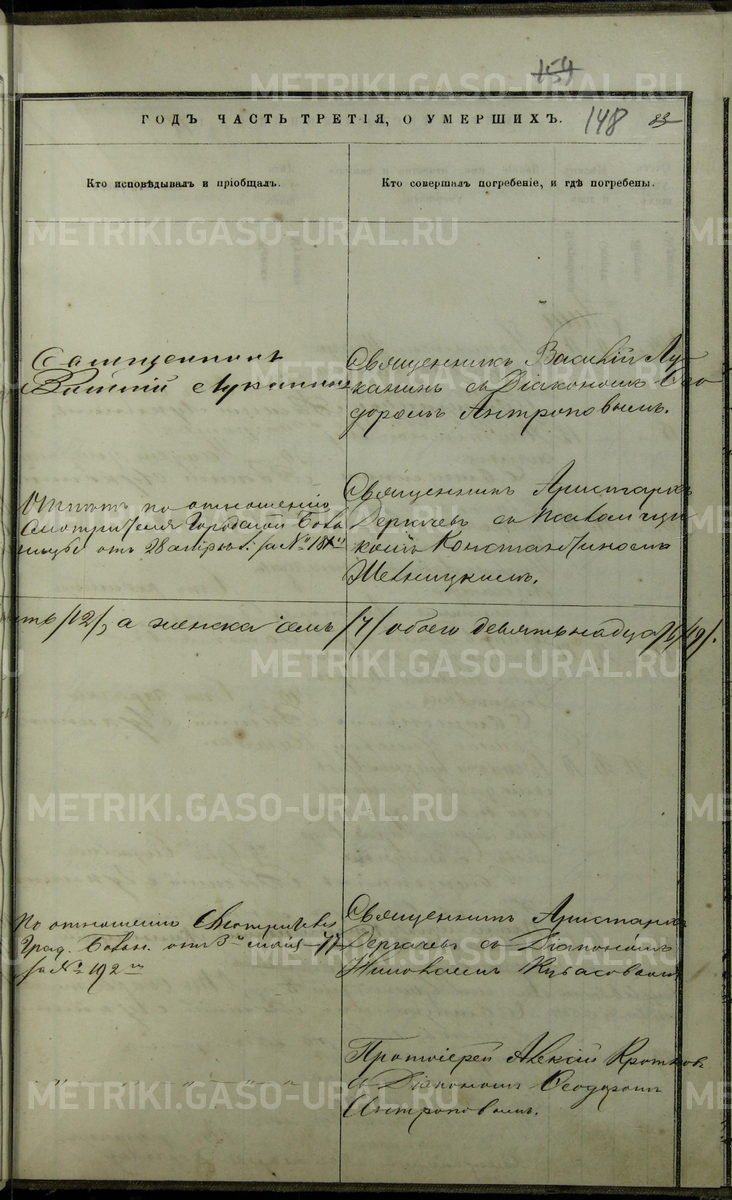 154
148 83
ГОДЪ ЧАСТЬ ТРЕТІЯ, О УМЕРШИХЪ.
Кто исповѣдывалъ и пріобщалъ.
Кто совершалъ погребеніе, и гдѣ погребены.
Священникъ
Василій Луканинъ
Священникъ Василій Лу-
канинъ съ Діакономъ Ѳео-
доромъ Антроповымъ.
Отпѣтъ по отношенію
Смотрителя Городской Бога
дѣльни отъ 28 апрѣля за №
Священникъ Аристархъ
Дергачевъ съ Псаломщи-
комъ Константиномъ
/12/, а женска семь /7/ обоего девятьнадцать /19/.
По отношенію Смотрителя
Град. Богад. отъ 3го мая
за № 192м
Священникъ Аристархъ
Дергачевъ съ Діакономъ
Николаемъ
Протоіерей Алексій Кротковъ
съ Діакономъ Ѳеодоромъ
Антроповымъ.
METRIKI.GASO-URAL.RU